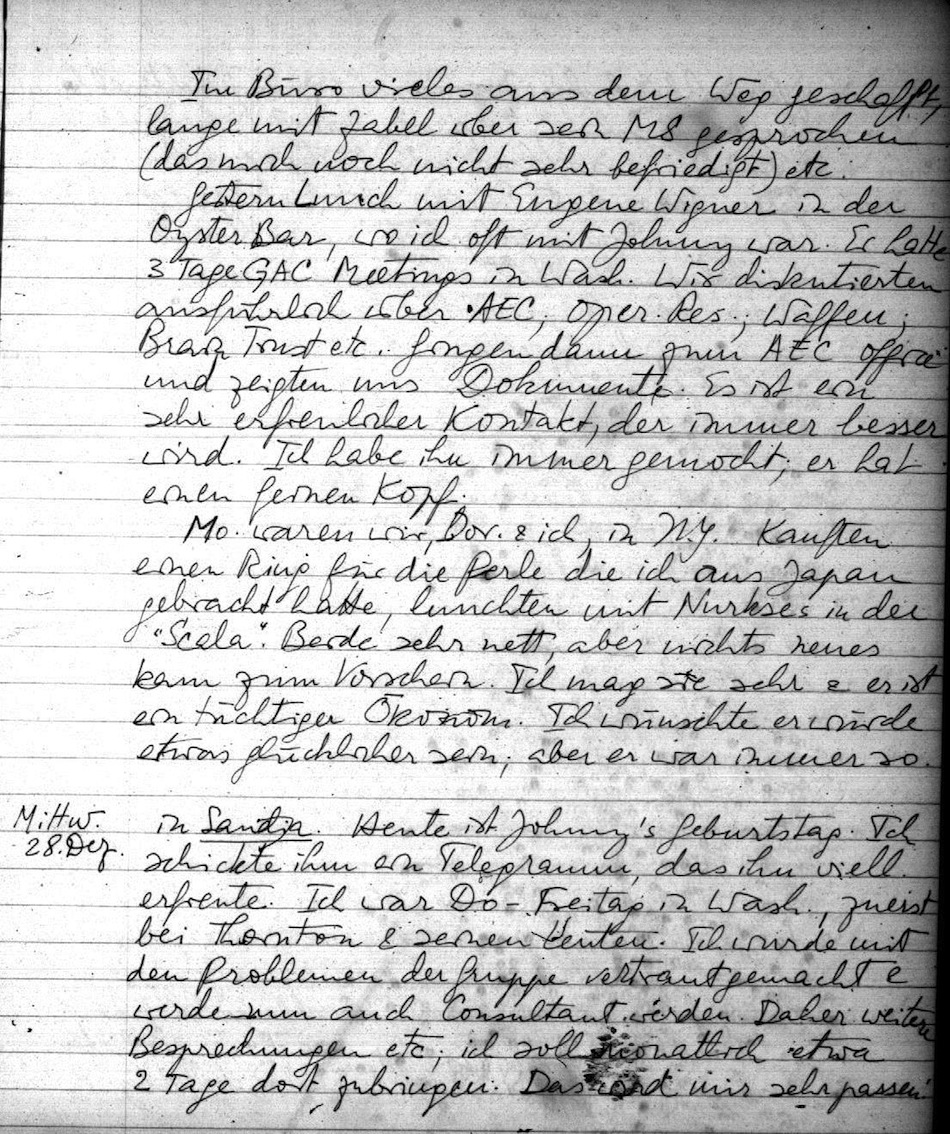 Im Büro vieles aus dem Weg geschafft,
lange mit Zabel über sein MS gesprochen
(das mich noch nicht sehr befriedigt) etc.
Gestern Lunch mit Eugene Wigner in der
Oyster Bar, wo ich oft mit Johnny war. Er hatte
3 Tage GAC Meetings in Wash. Wir diskutierten
ausführlich über AEC, Oper. Res.; Waffen;
Brain Trust etc. Gingen dann zum AEC office
und zeigten uns Dokumente. Es ist ein
sehr erfreulicher Kontakt, der immer besser
wird. Ich habe ihn immer gemocht; er hat
einen feinen Kopf.
Mo. waren wir, Dor. & ich, in N.Y. Kauften
einen Ring für die Perle die ich aus Japan
gebracht hatte, lunchten mit Nurkses in der
"Scala". Beide sehr nett, aber nichts neues
kam zum Vorschein. Ich mag sie sehr & er ist
ein tüchtiger Ökonom. Ich wünschte er würde
etwas glücklicher sein; aber er war immer so.
Mittw. in Sandja. Heute ist Johnny's Geburtstag. Ich
28. Dez. schickte ihm ein Telegramm, das ihn viell.
erfreute. Ich war Do - Freitag in Wash., zuerst
bei Thornton & seinen Leuten. Ich wurde mit
den Problemen der Gruppe vertraut gemacht &
werde nun auch Consultant werden. Daher weitere
Besprechungen etc; ich soll monatlich etwa
2 Tage dort zubringen. Das wird mir sehr passen.